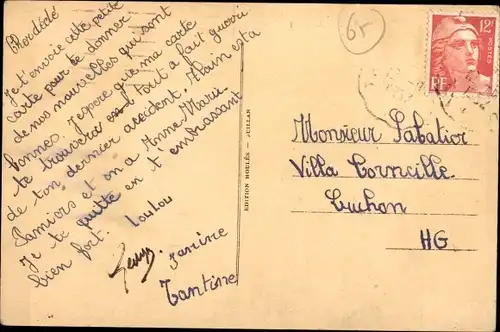 Cher dédé
Je t'envoie cette petite
carte pour te donner
de nos nouvelles qui sont
bonnes. J'espère que ma carte
te trouvera tout à fait guerri
de ton dernier accident. Alain est a
Pamiers et on a Anne Marie
Je te quitte en t embrassant
bien fort. Loulou
Janine
Tantine
EDITION ROULÈS - QUILLAN
65
12F
POSTES
RF
Monsieur Sabatier
Villa Corneille
Luchon
HG